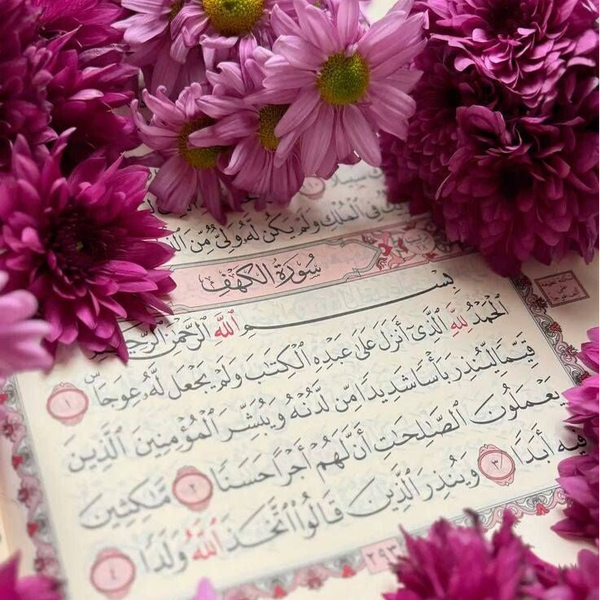 فِي الْمُلْكِ وَلَمْ يَكُن لَّهُ وَلِيٌّ مِّنَ
سُورَةُ الْكَهْفِ
بِسْمِ اللَّهِ الرَّحْمَٰنِ الرَّحِيمِ
الْحَمْدُ لِلَّهِ الَّذِي أَنزَلَ عَلَىٰ عَبْدِهِ الْكِتَابَ وَلَمْ يَجْعَل لَّهُ عِوَجًا ۜ ١
قَيِّمًا لِّيُنذِرَ بَأْسًا شَدِيدًا مِّن لَّدُنْهُ وَيُبَشِّرَ الْمُؤْمِنِينَ الَّذِينَ
يَعْمَلُونَ الصَّالِحَاتِ أَنَّ لَهُمْ أَجْرًا حَسَنًا ٢ مَّاكِثِينَ
فِيهِ أَبَدًا ٣ وَيُنذِرَ الَّذِينَ قَالُوا اتَّخَذَ اللَّهُ وَلَدًا ٤
٢٩٣